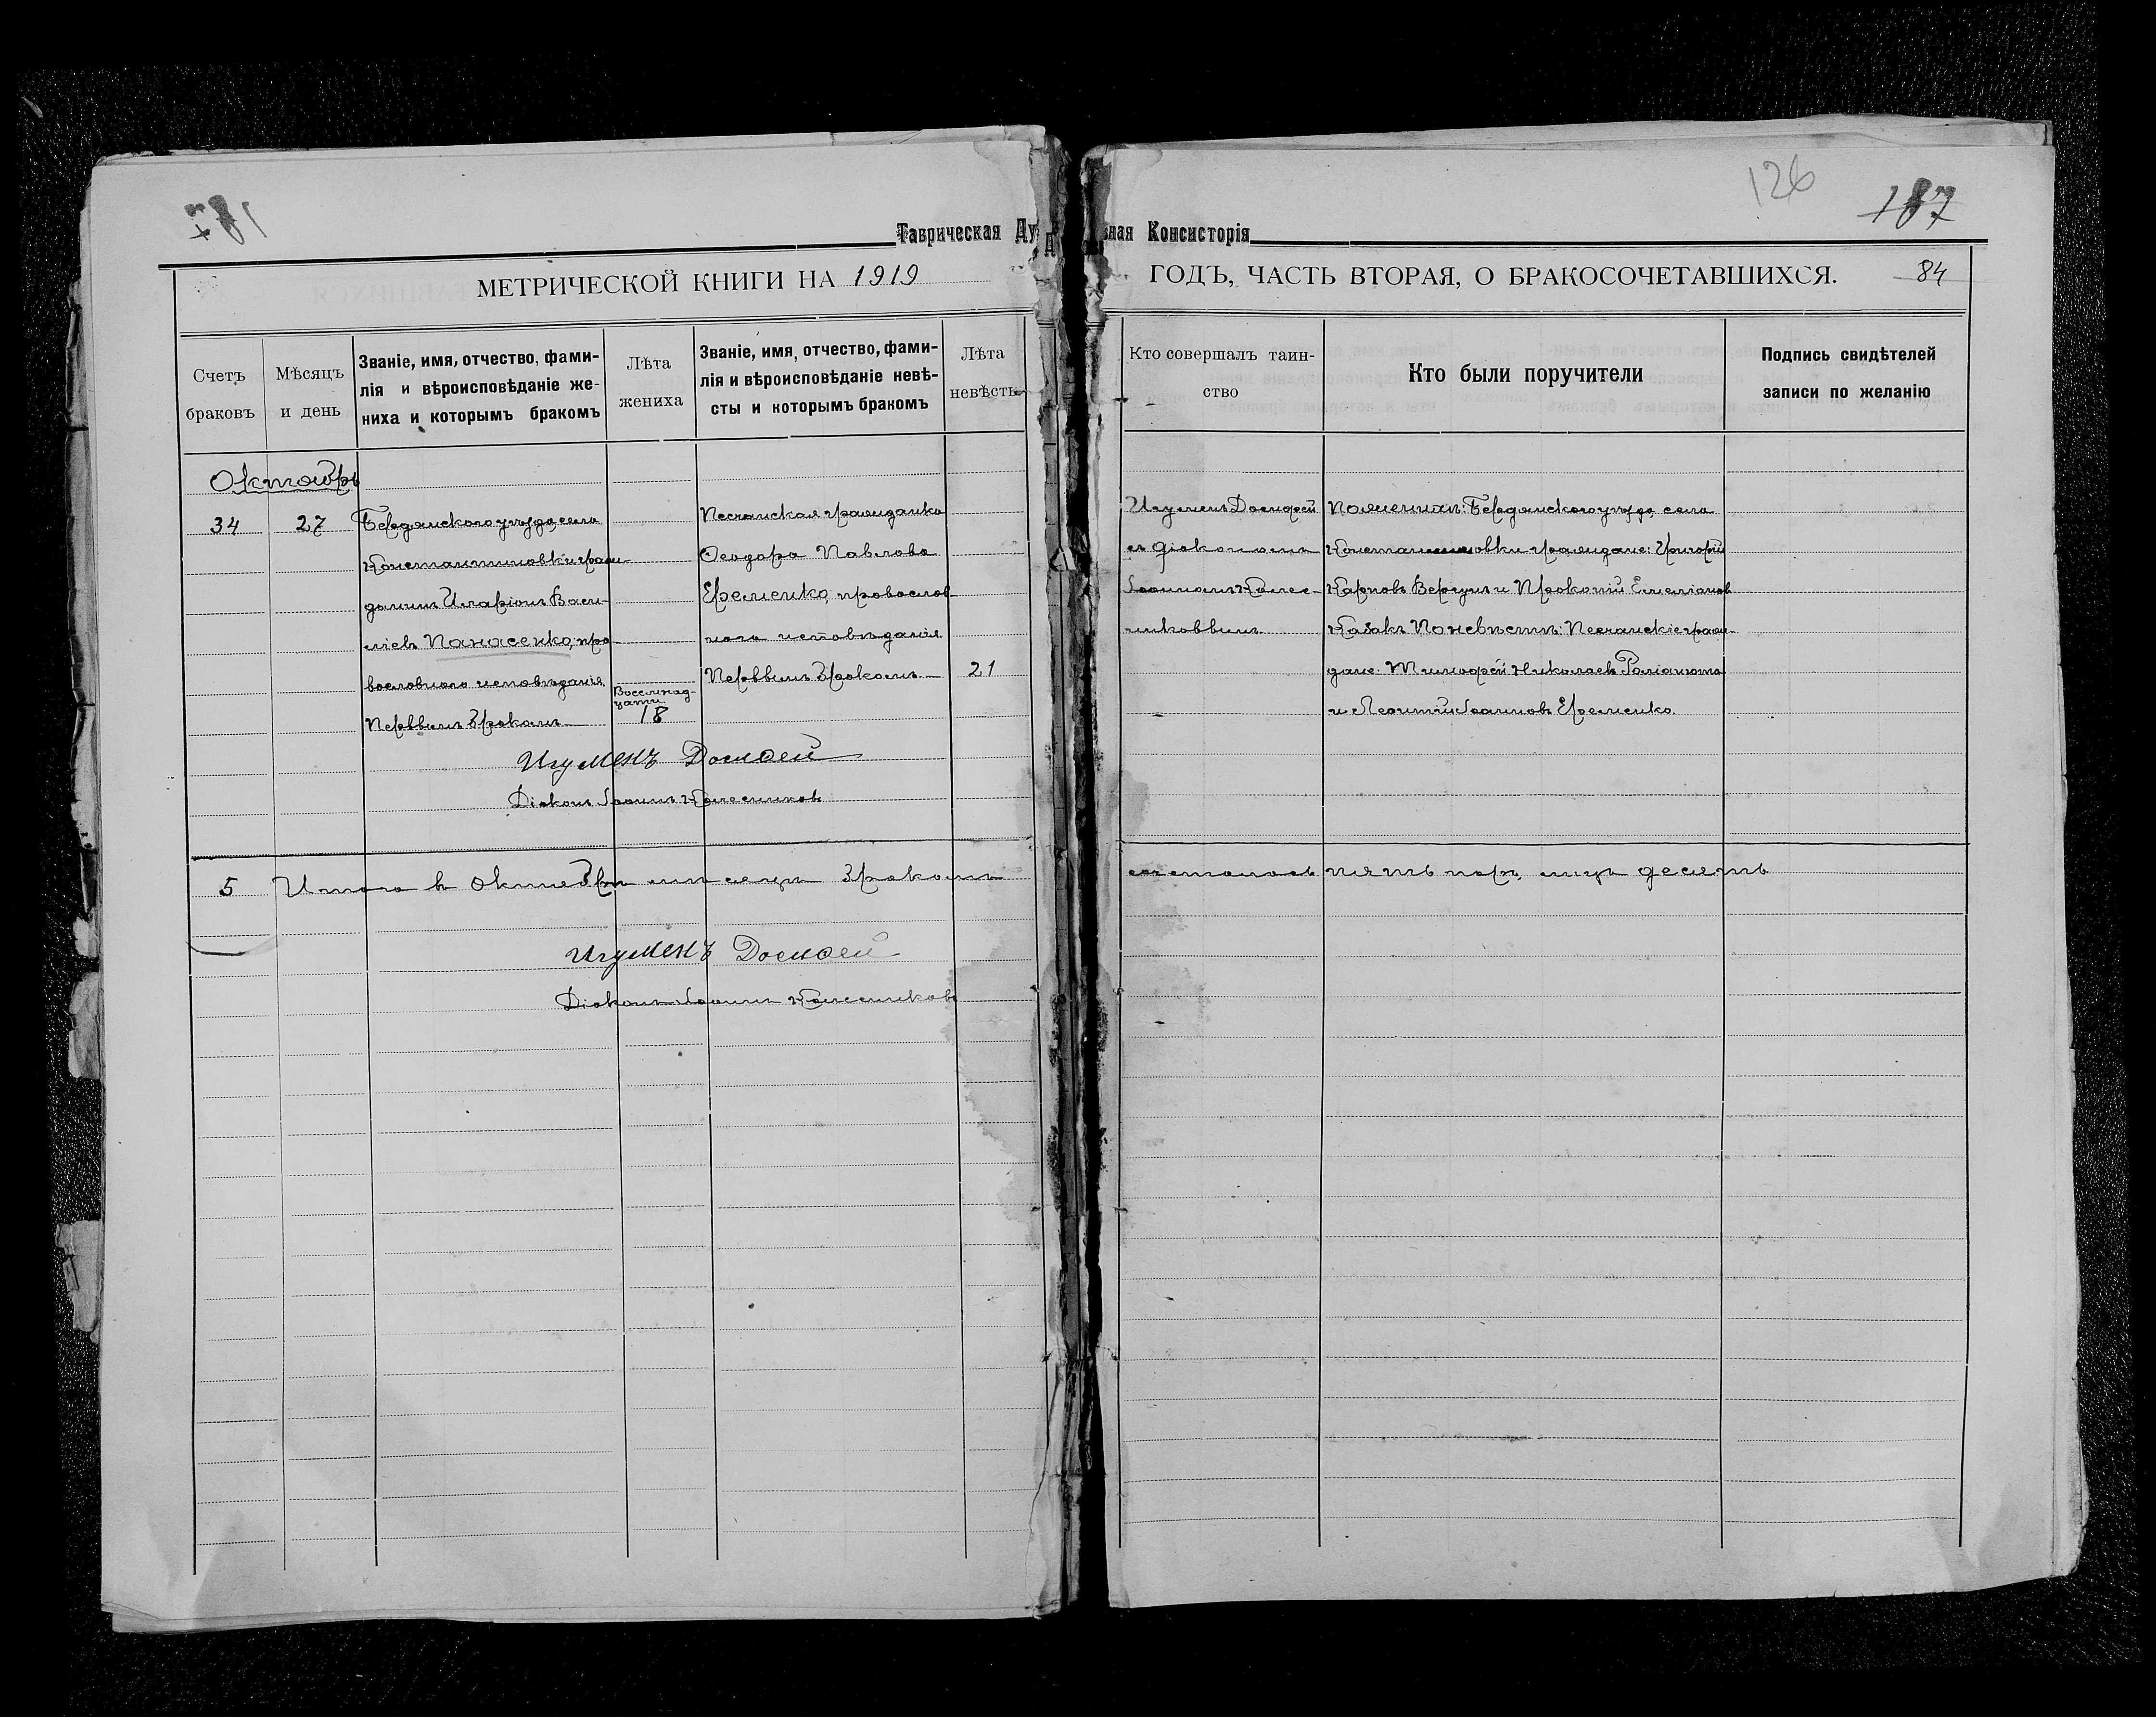 126
187
Таврическая Ду
вная Консисторія
МЕТРИЧЕСКОЙ КНИГИ НА 1919
ГОДЪ, ЧАСТЬ ВТОРАЯ, О БРАКОСОЧЕТАВШИХСЯ.
84
Счетъ браковъ
Мѣсяцъ и день
Званіе, имя, отчество, фами-
лія и вѣроисповѣданіе же-
ниха и которымъ бракомъ
Лѣта
жениха
Званіе, имя, отчество, фами-
лія и вѣроисповѣданіе невѣ-
сты и которымъ бракомъ
Лѣта
невѣсты
Кто совершалъ таин-
ство
Кто были поручители
Подпись свидѣтелей
записи по желанію
Октябрь
34
27
Бердянскаго уѣзда, села
Константиновки граж-
данинъ Иларіонъ Васи-
ліевъ Панасенко, пра-
вославнаго исповѣданія
Первымъ бракомъ
Восемнад-
цати
18
Песчанская гражданка
Ѳеодора Павлова
Ефеменко, православ-
наго исповѣданія
Первымъ бракомъ
21
Игуменъ Досиѳей
съ діакономъ
Іоанномъ Колес-
никовымъ
По женихѣ: Бердянскаго уѣзда, села
Константиновки граждане: Григорій
Карповъ Вергунъ и Прокопій Емеліановъ
Казакъ По невѣстѣ: Песчанскіе граж-
дане: Тимоѳей Николаевъ Романюта
и Леонтій Іоанновъ Ефеменко.
Игуменъ Досиѳей
Діаконъ Іоаннъ Колесниковъ
5
Итого въ Октябрѣ мѣсяцѣ бракомъ
сочеталось пять паръ, лицъ десять
Игуменъ Досиѳей
Діаконъ Іоаннъ Колесниковъ